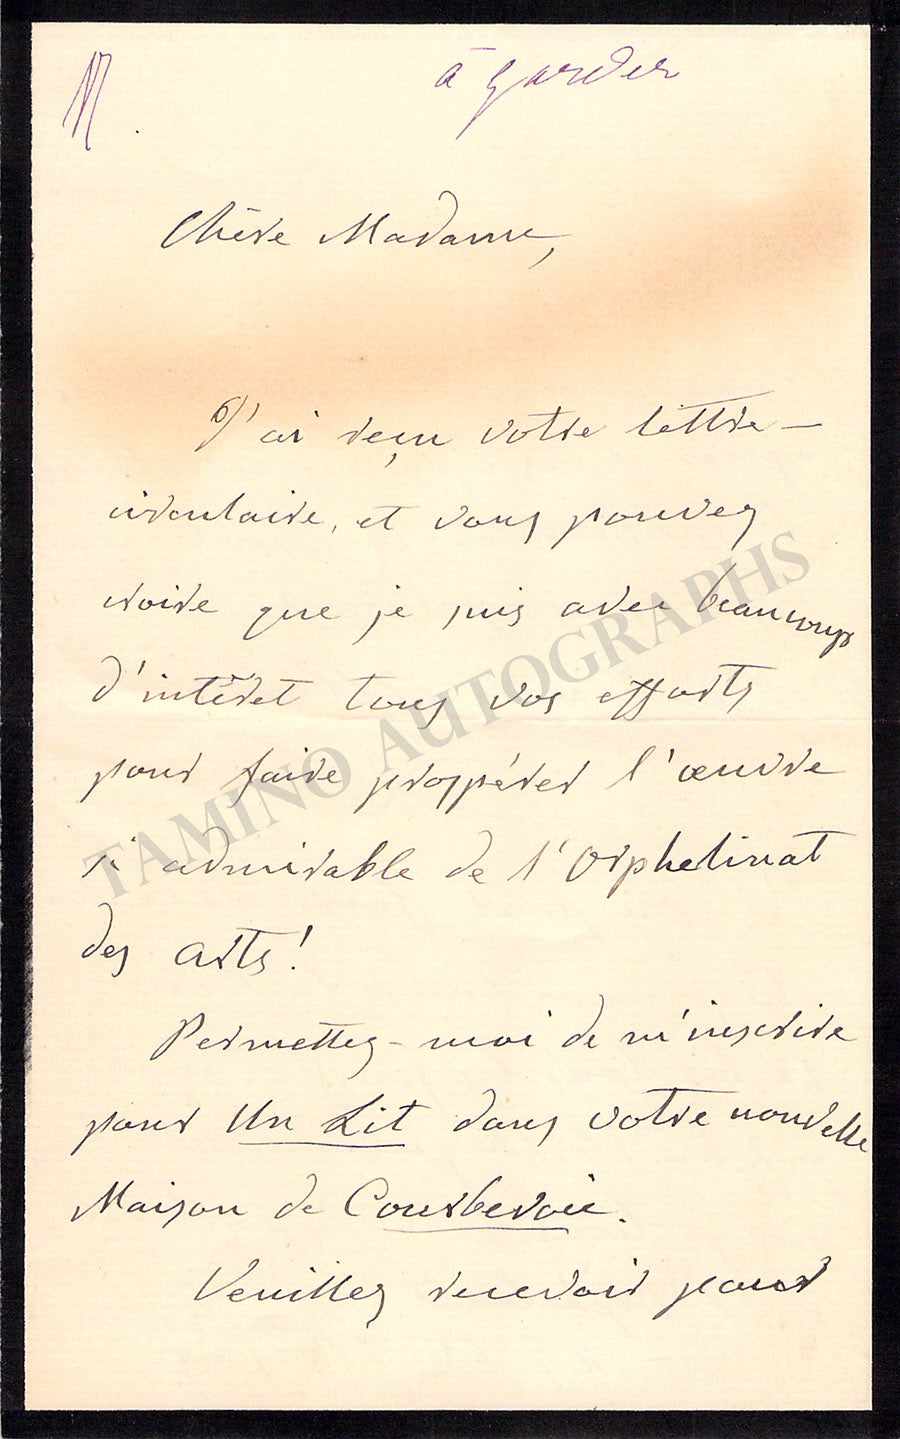 à garder
Chère Madame,
J'ai reçu votre lettre-
circulaire, et vous pouvez
croire que je suis avec beaucoup
d'intérêt tous vos efforts
pour faire prospérer l'œuvre
si admirable de l'Orphelinat
des arts!
Permettez-moi de m'inscrire
pour Un Lit dans votre nouvelle
Maison de Courbevoie.
Veuillez recevoir pour
TAMINO AUTOGRAPHS